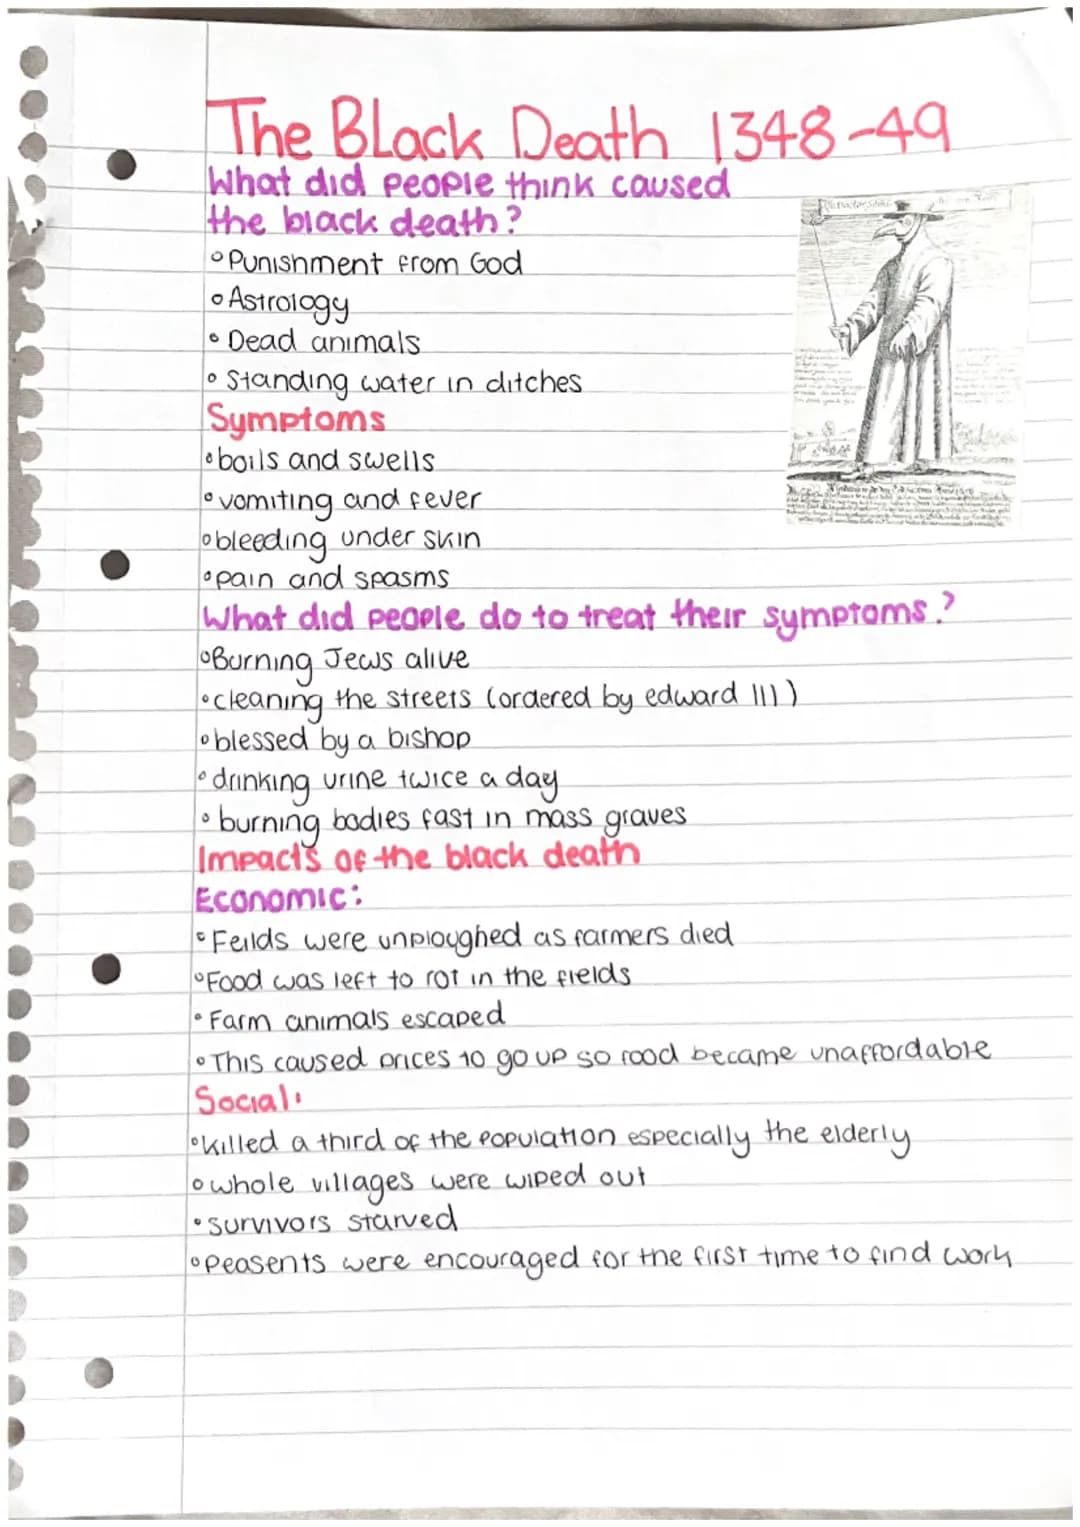 The Black Death 1348-49
What did people think caused
the black death?
Punishment from God
Astrology
Dead animals
Standing water in ditches
Symptoms
boils and swells
vomiting and fever
bleeding under skin
pain and spasms
What did people do to treat their symptoms?
Burning Jews alive
cleaning the streets (ordered by edward III)
blessed by a bishop
drinking urine twice a day
burning bodies fast in mass graves
Impacts of the black death
Economic:
Feilds were unploughed as farmers died
Food was left to rot in the fields
Farm animals escaped
This caused prices to go up so food became unaffordable
Social:
killed a third of the population especially the elderly
whole villages were wiped out
survivors starved
Peasents were encouraged for the first time to find work